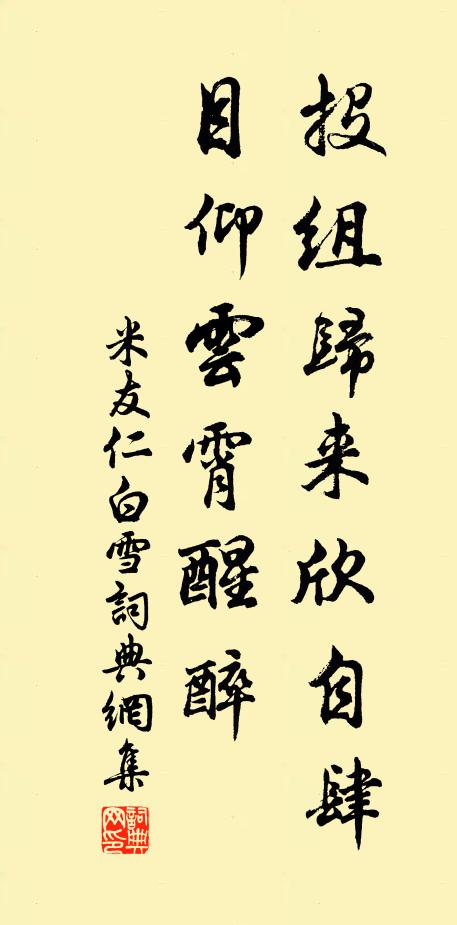 投組歸来欣自肆
目仰雲霄醒醉
米友仁白雪詞典網集
詞典网印